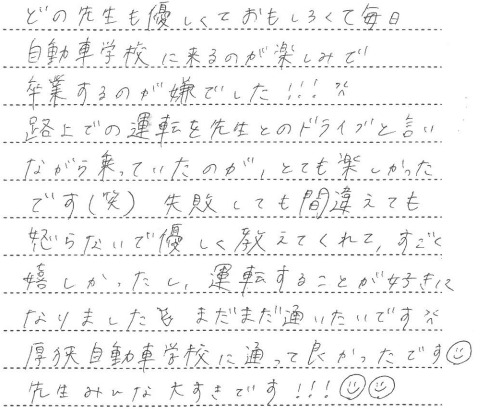 どの先生も優しくておもしろくて毎日
自動車学校に来るのが楽しみで
卒業するのが嫌でした!!!
路上での運転を先生とのドライブと言い
ながら乗っていたのが、とても楽しかった
です(笑) 失敗しても間違えても
怒らないで優しく教えてくれて、すごく
嬉しかったし、運転することが好きに
なりました まだまだ通いたいです
厚狭自動車学校に通って良かったです☺
先生みんな大すきです!!!☺☺